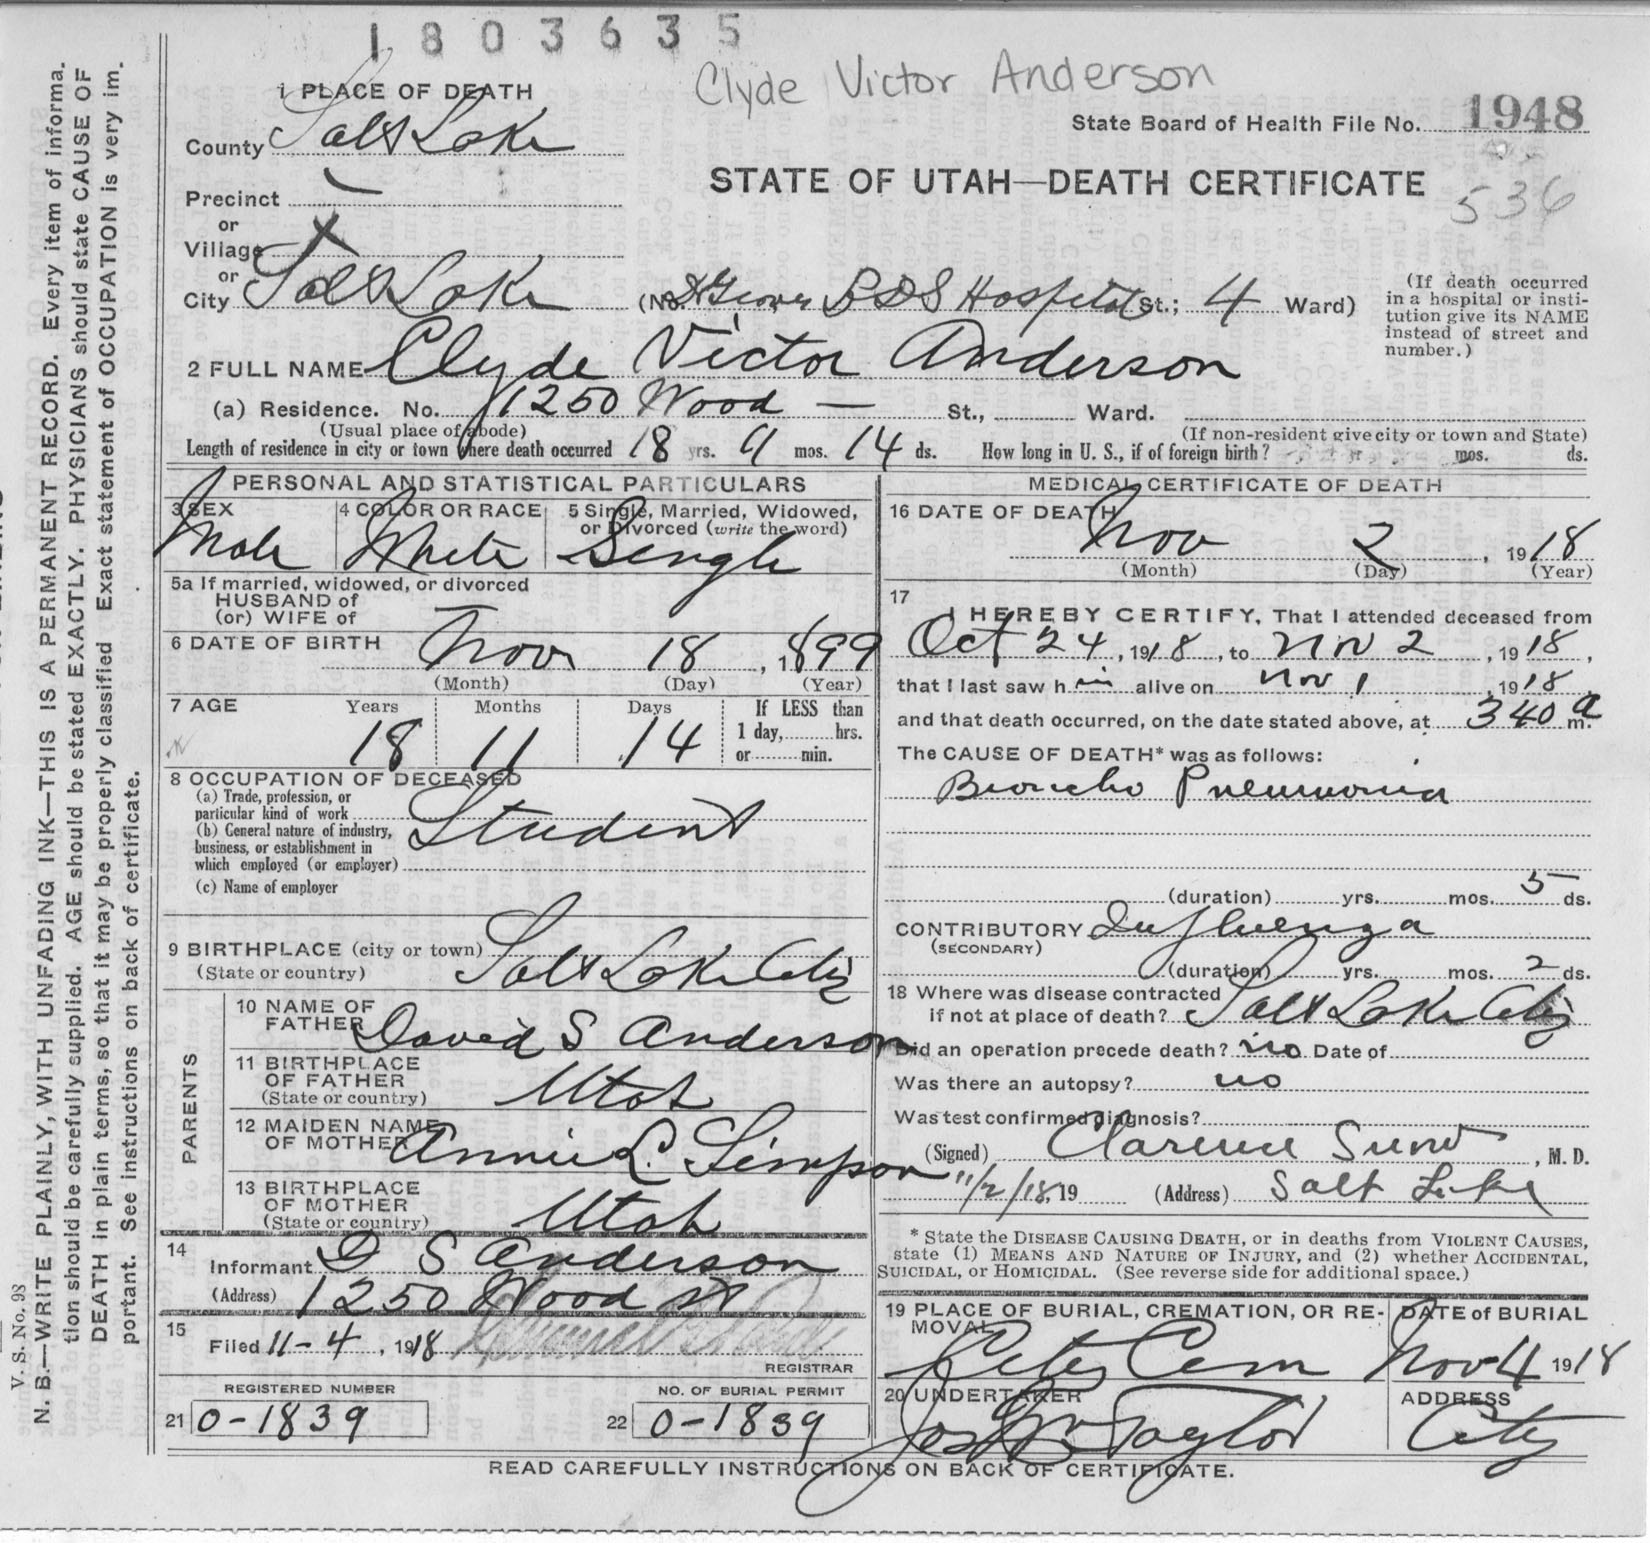 1803635
Clyde Victor Anderson
1 PLACE OF DEATH
State Board of Health File No. 1948
County Salt Lake
STATE OF UTAH—DEATH CERTIFICATE
536
Precinct
or
Village X
or
City Salt Lake (No. LDS Hospital St.; 4 Ward)
(If death occurred
in a hospital or insti-
tution give its NAME
instead of street and
number.)
2 FULL NAME Clyde Victor Anderson
(a) Residence. No. 1250 Wood — St., Ward.
(Usual place of abode) (If non-resident give city or town and State)
Length of residence in city or town where death occurred 18 yrs. 11 mos. 14 ds. How long in U. S., if of foreign birth? yr. mos. ds.
PERSONAL AND STATISTICAL PARTICULARS
3 SEX Male
4 COLOR OR RACE White
5 Single, Married, Widowed,
or Divorced (write the word)
Single
5a If married, widowed, or divorced
HUSBAND of
(or) WIFE of
6 DATE OF BIRTH Nov 18, 1899
(Month) (Day) (Year)
7 AGE Years Months Days If LESS than
1 day, hrs.
or min.
18 11 14
8 OCCUPATION OF DECEASED
(a) Trade, profession, or
particular kind of work
Student
(b) General nature of industry,
business, or establishment in
which employed (or employer)
(c) Name of employer
9 BIRTHPLACE (city or town) Salt Lake City
(State or country)
PARENTS
10 NAME OF
FATHER David S Anderson
11 BIRTHPLACE
OF FATHER Utah
(State or country)
12 MAIDEN NAME
OF MOTHER Annie L. Simpson
13 BIRTHPLACE
OF MOTHER Utah
(State or country)
14
Informant D S Anderson
(Address) 1250 Wood st
15
Filed 11-4, 1918
REGISTRAR
REGISTERED NUMBER
21 0-1839
NO. OF BURIAL PERMIT
22 0-1839
MEDICAL CERTIFICATE OF DEATH
16 DATE OF DEATH Nov 2, 1918
(Month) (Day) (Year)
17
I HEREBY CERTIFY, That I attended deceased from
Oct 24, 1918, to Nov 2, 1918,
that I last saw him alive on Nov 1, 1918
and that death occurred, on the date stated above, at 340 a m.
The CAUSE OF DEATH* was as follows:
Broncho Pneumonia
(duration) yrs. mos. 5 ds.
CONTRIBUTORY Influenza
(SECONDARY)
(duration) yrs. mos. 2 ds.
18 Where was disease contracted
if not at place of death? Salt Lake City
Did an operation precede death? no Date of
Was there an autopsy? no
Was test confirmed diagnosis?
(Signed) Clarence Snow, M. D.
11/2/18 19 (Address) Salt Lake
* State the DISEASE CAUSING DEATH, or in deaths from VIOLENT CAUSES,
state (1) MEANS AND NATURE OF INJURY, and (2) whether ACCIDENTAL,
SUICIDAL, or HOMICIDAL. (See reverse side for additional space.)
19 PLACE OF BURIAL, CREMATION, OR RE-
MOVAL
City Cem
DATE of BURIAL
Nov 4 1918
20 UNDERTAKER
Jos Wm Taylor
ADDRESS
City
READ CAREFULLY INSTRUCTIONS ON BACK OF CERTIFICATE.
V. S. No. 98
N. B.—WRITE PLAINLY, WITH UNFADING INK—THIS IS A PERMANENT RECORD. Every item of informa-
tion should be carefully supplied. AGE should be stated EXACTLY. PHYSICIANS should state CAUSE OF
DEATH in plain terms, so that it may be properly classified Exact statement of OCCUPATION is very im-
portant. See instructions on back of certificate.